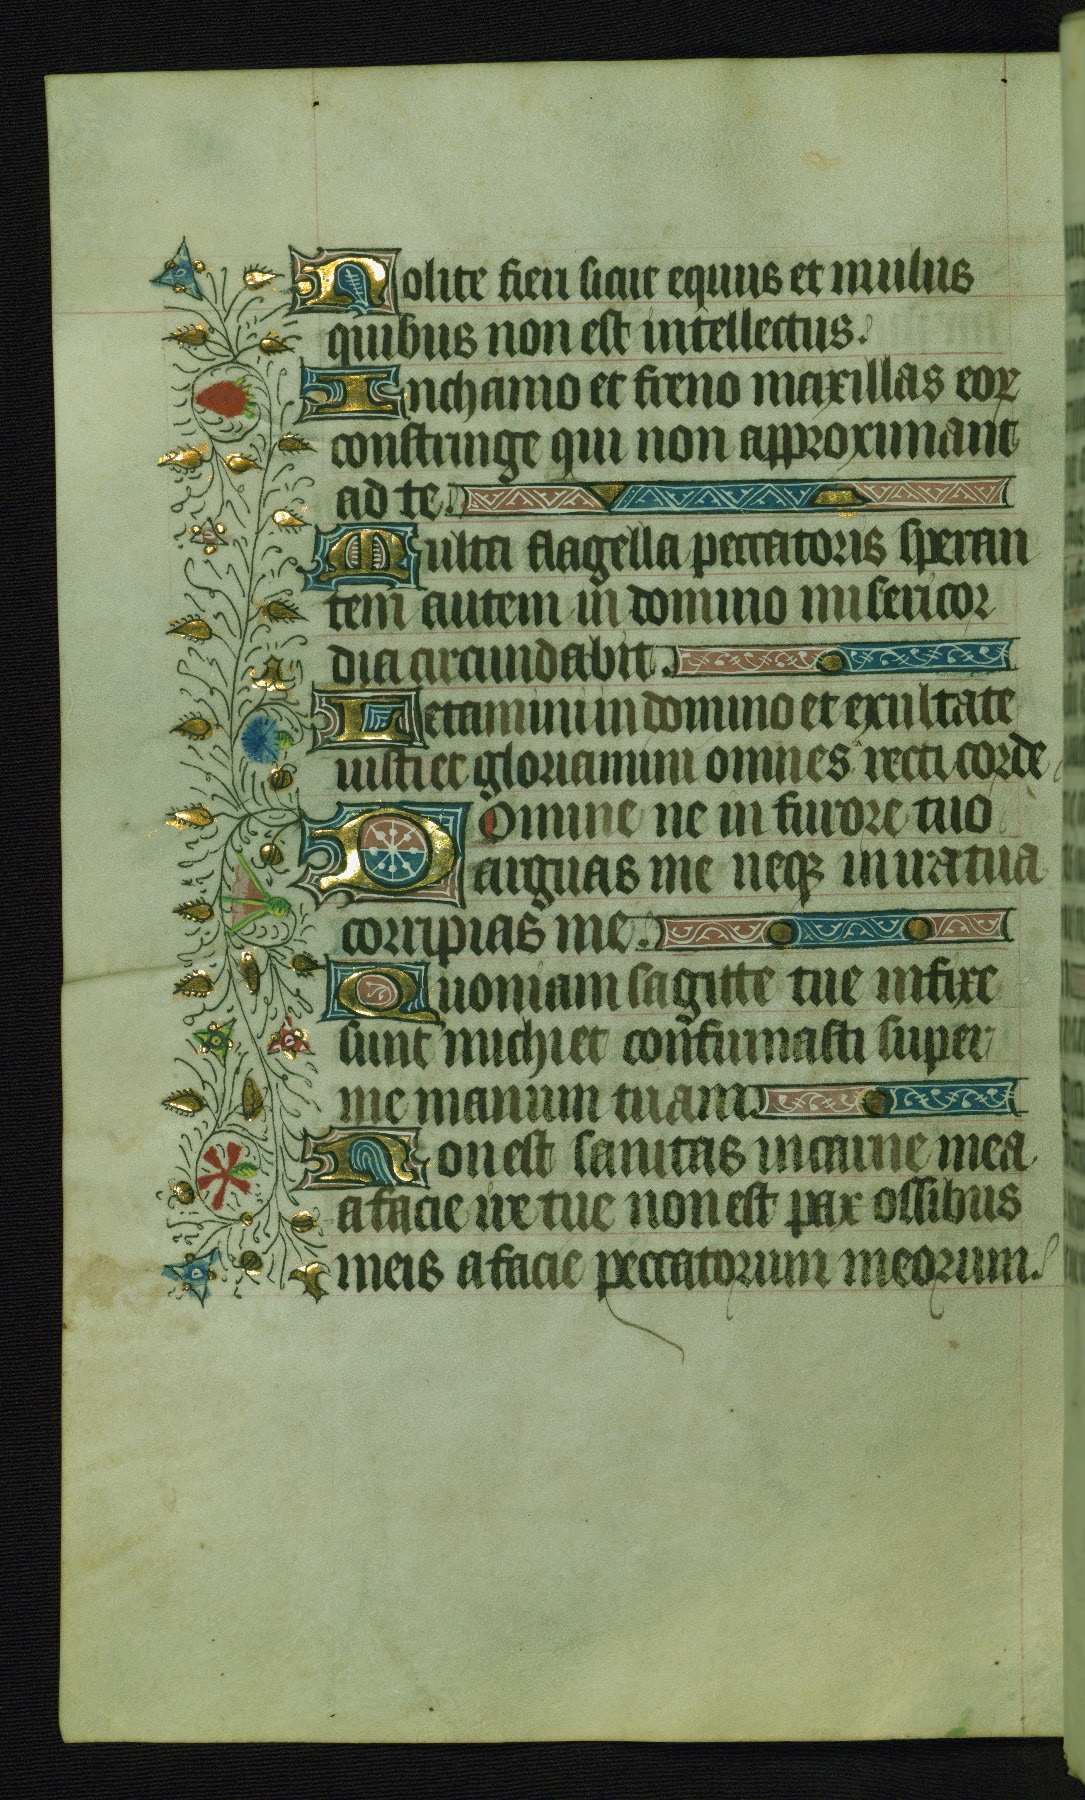 Nolite fieri sicut equus et mulus
quibus non est intellectus.
In chamo et freno maxillas eoꝝ
constringe qui non approximant
ad te.
Multa flagella peccatoris speran
tem autem in domino misericor
dia circundabit.
Letamini in domino et exultate
iusti et gloriamini omnes recti corde
Domine ne in furore tuo
arguas me neqꝫ in ira tua
corripias me.
Quoniam sagitte tue infixe
sunt michi et confirmasti super
me manum tuam.
Non est sanitas in carne mea
a facie ire tue non est pax ossibus
meis a facie peccatorum meorum.